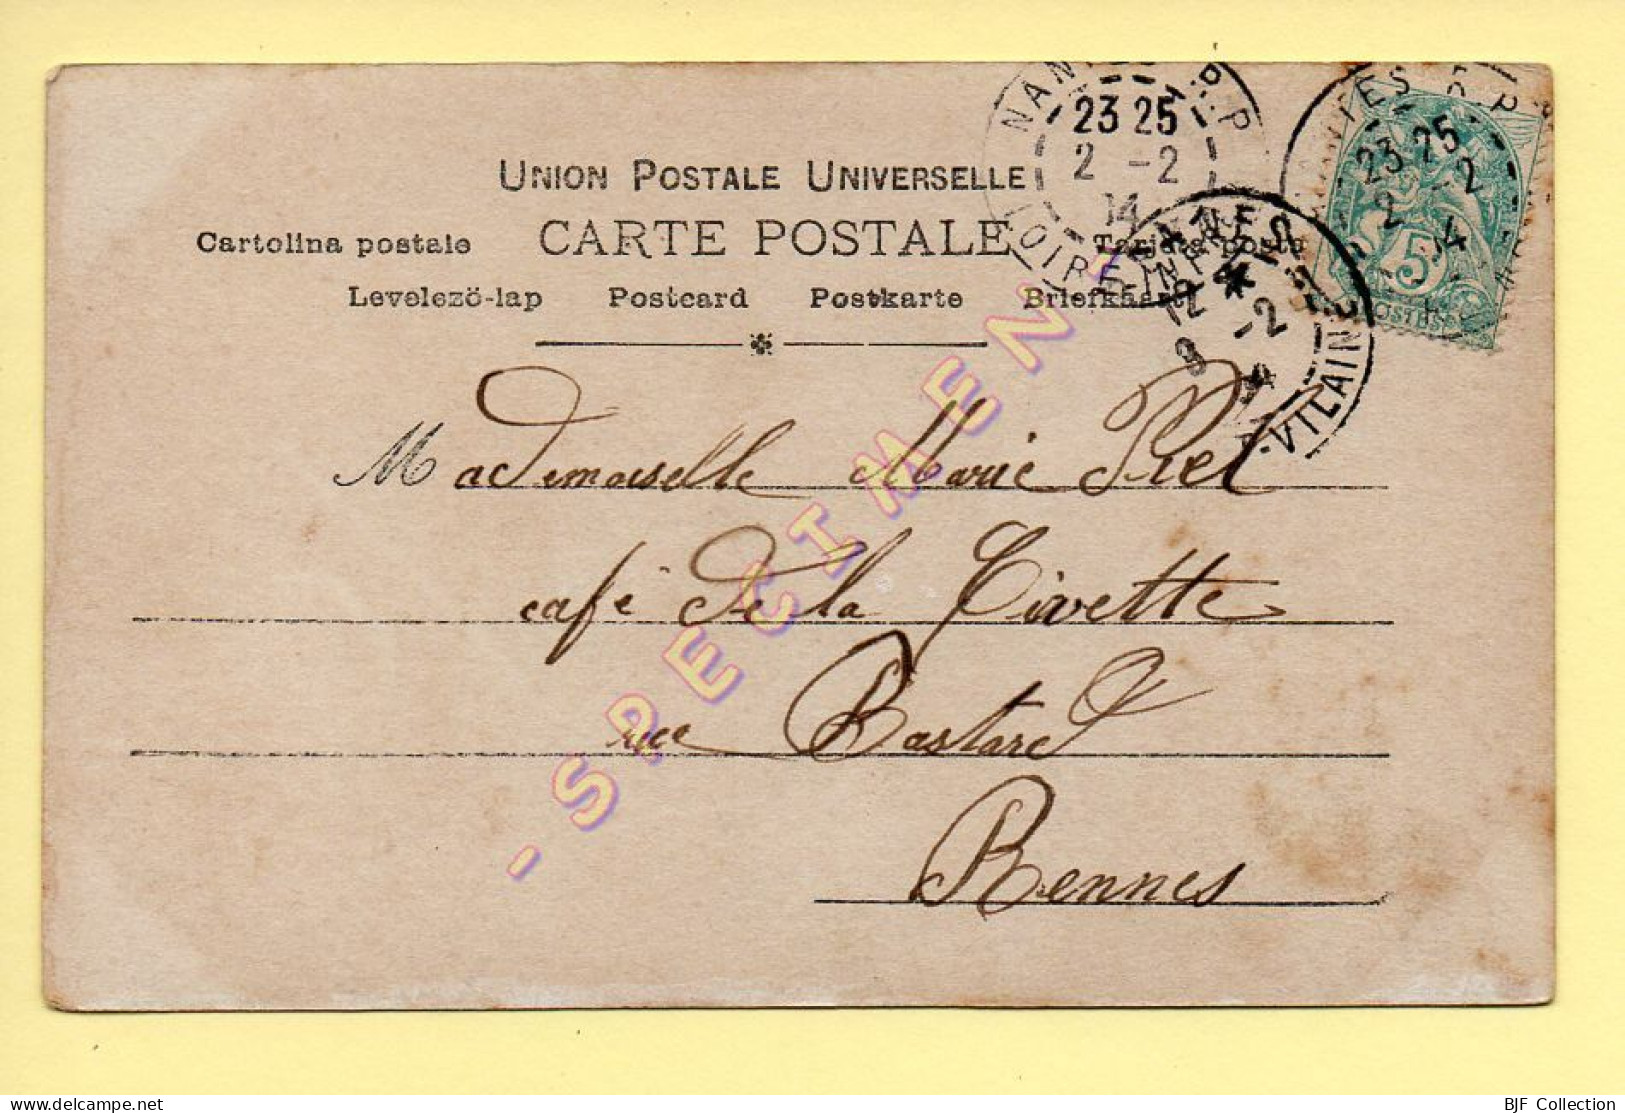 UNION POSTALE UNIVERSELLE
Cartolina postale CARTE POSTALE Tarjeta posta
Levelezö-lap Postcard Postkarte Briefkaart
NANTES R.P
23 25
2 -2
14
LOIRE INFRE
NANTES R.P
23 25
2 -2
14
5
POSTES
RENNES
12
3 -2
VILAINE
Mademoiselle Marie Piel
café de la Civette
rue Bastard
Rennes
- SPECIMEN -
BJF Collection